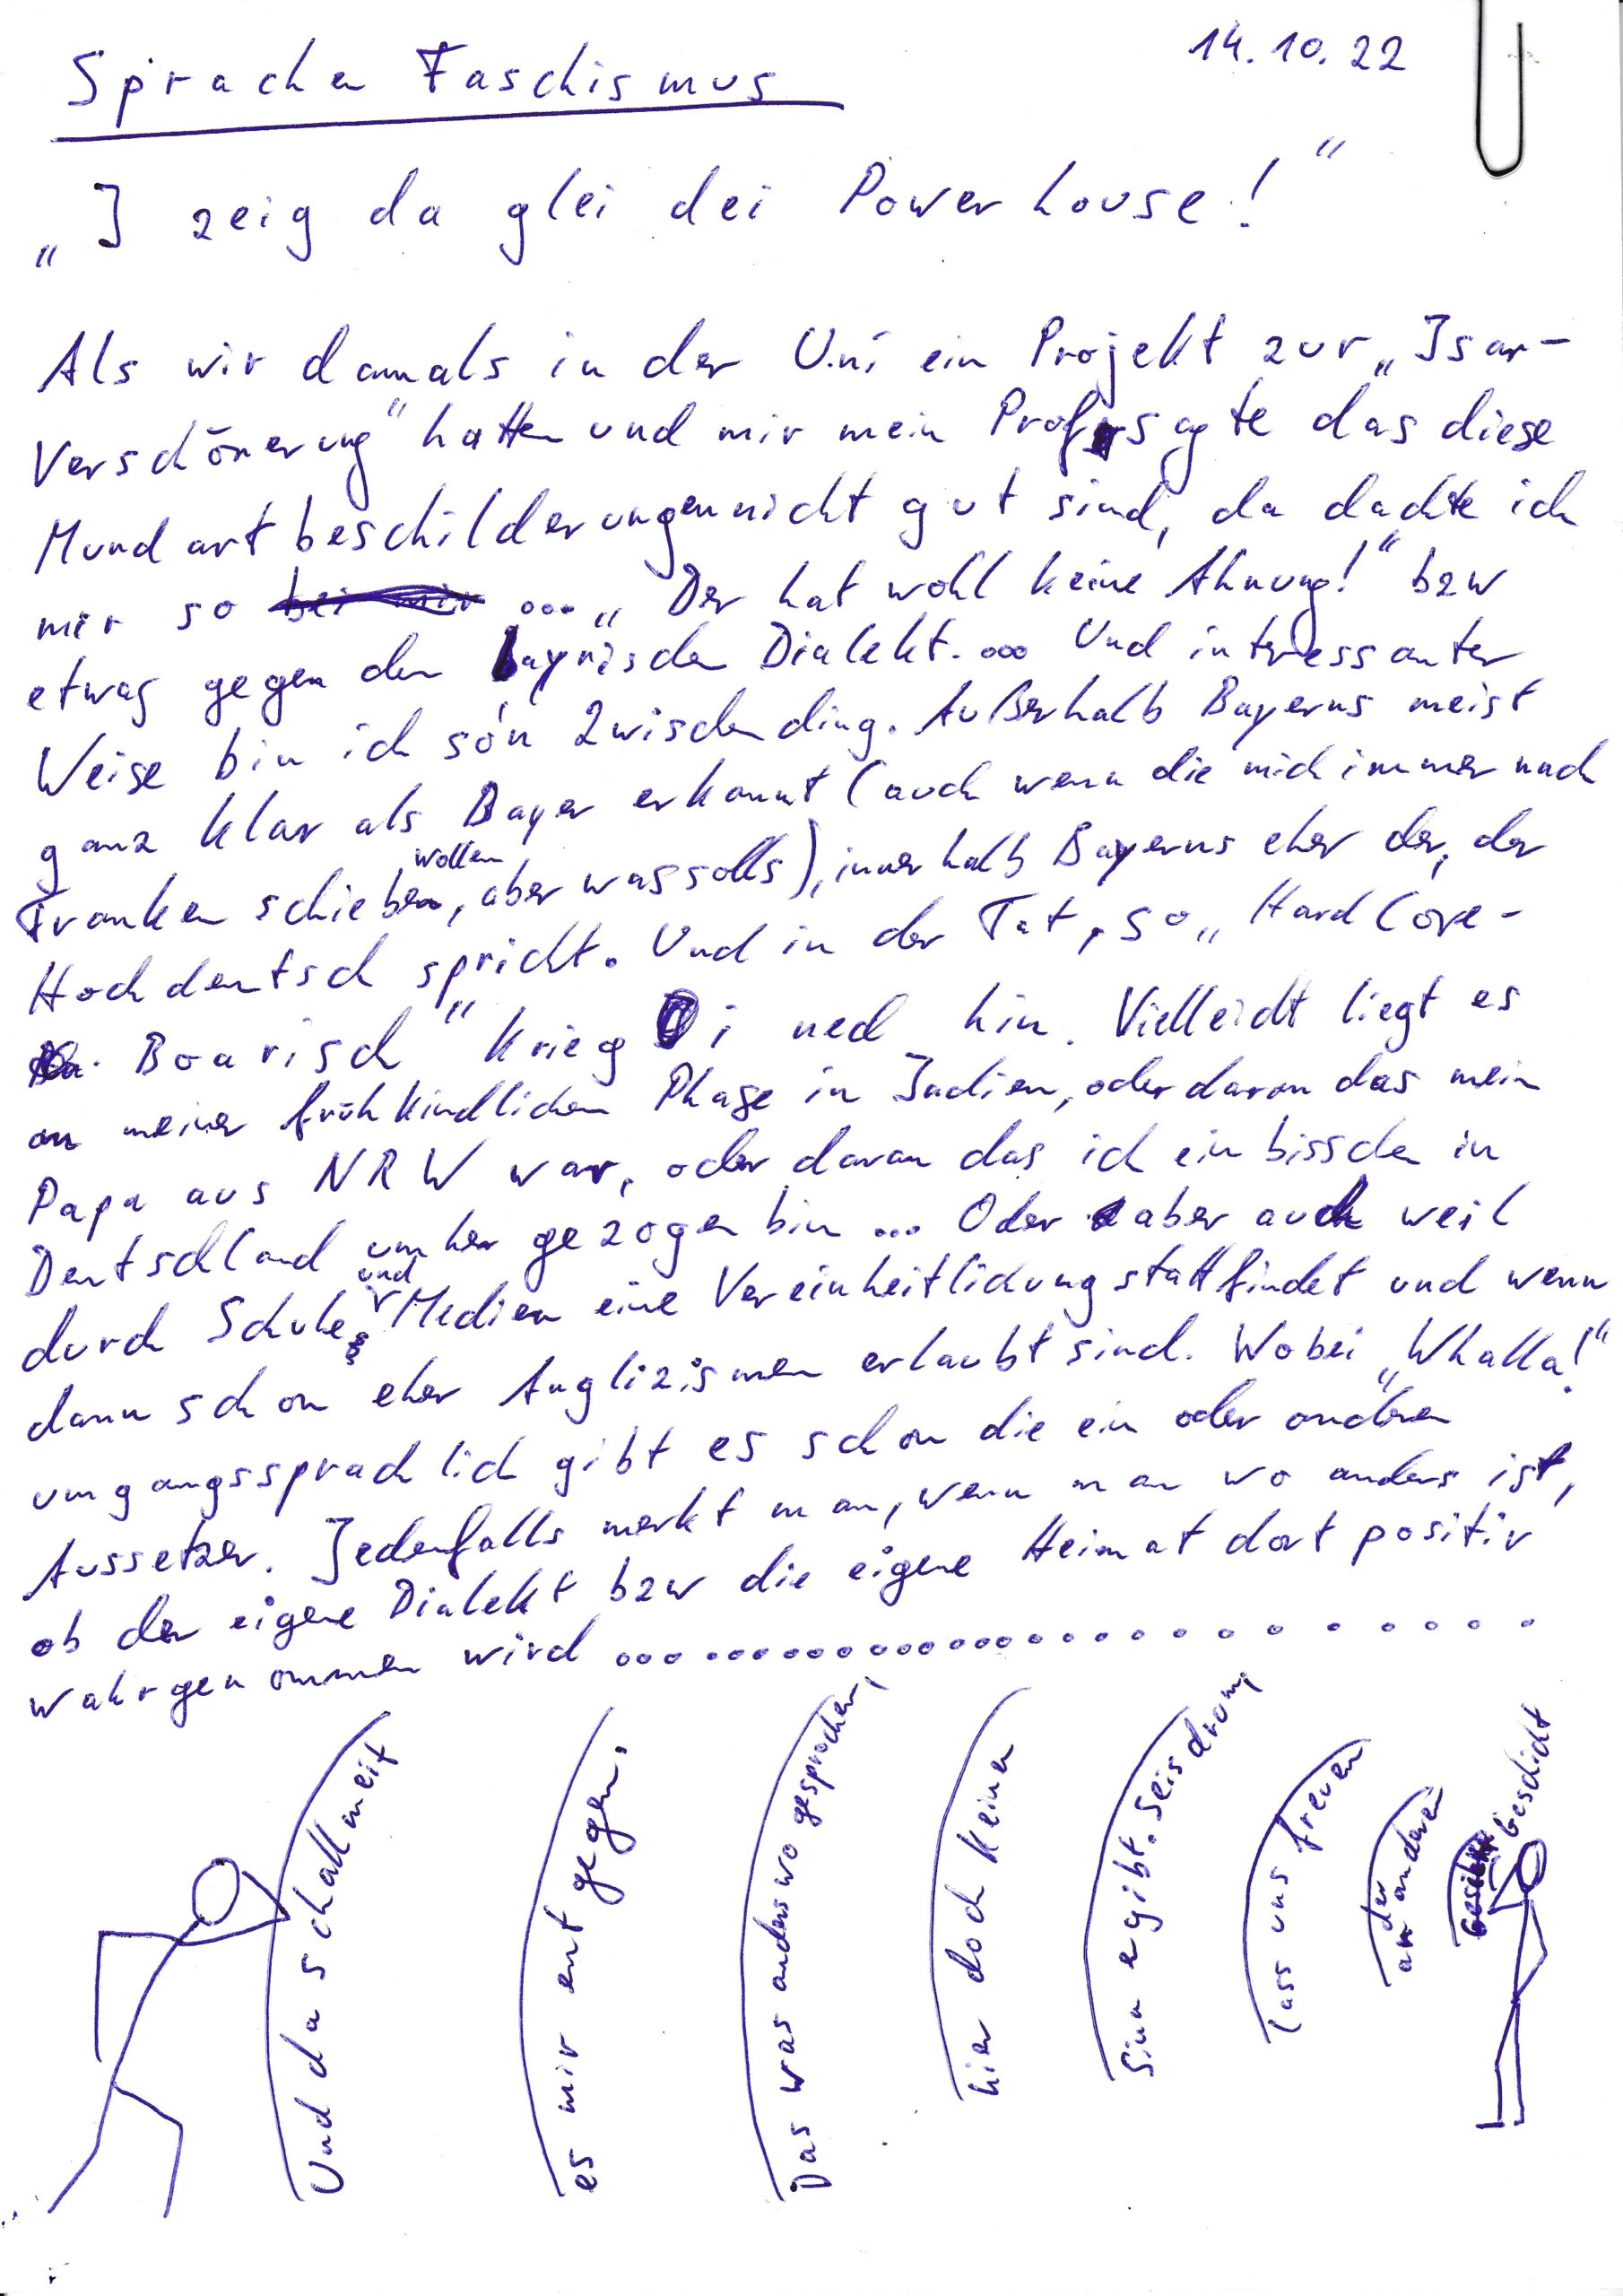 14.10.22
Sprachen Faschismus
„I zeig da glei dei Powerhouse!"
Als wir damals in der Uni ein Projekt zur „Isar-
Verschönerung" hatten und mir mein Prof sagte das diese
Mundartbeschilderungen nicht gut sind, da dachte ich
mir so bei mir ... „Der hat wohl keine Ahnung!" bzw
etwas gegen den bayrischen Dialekt. ... Und intressanter
Weise bin ich so'n Zwischending. Außerhalb Bayerns meist
ganz klar als Bayer erkannt (auch wenn die mich immer nach
Franken schieben wollen, aber was solls), innerhalb Bayerns eher der, der
Hochdeutsch spricht. Und in der Tat, so „Hard Core-
Boarisch" krieg i ned hin. Vielleicht liegt es
an meiner frühkindlichen Phase in Indien, oder daran das mein
Papa aus NRW war, oder daran das ich ein bisschen in
Deutschland umher gezogen bin ... Oder aber auch weil
durch Schule und Medien eine Vereinheitlichung stattfindet und wenn
dann schon eher Anglizismen erlaubt sind. Wobei „Whalla!"
umgangssprachlich gibt es schon die ein oder anderen
Aussetzer. Jedenfalls merkt man, wenn man wo anders ist,
ob der eigene Dialekt bzw die eigene Heimat dort positiv
wahrgenommen wird ..............................
Und da schallmeit
es mir entgegen:
Das was anderswo gesprochen,
hier doch keinen
Sinn ergibt. Seis drum,
lass uns freuen
an der anderen
Geschicht